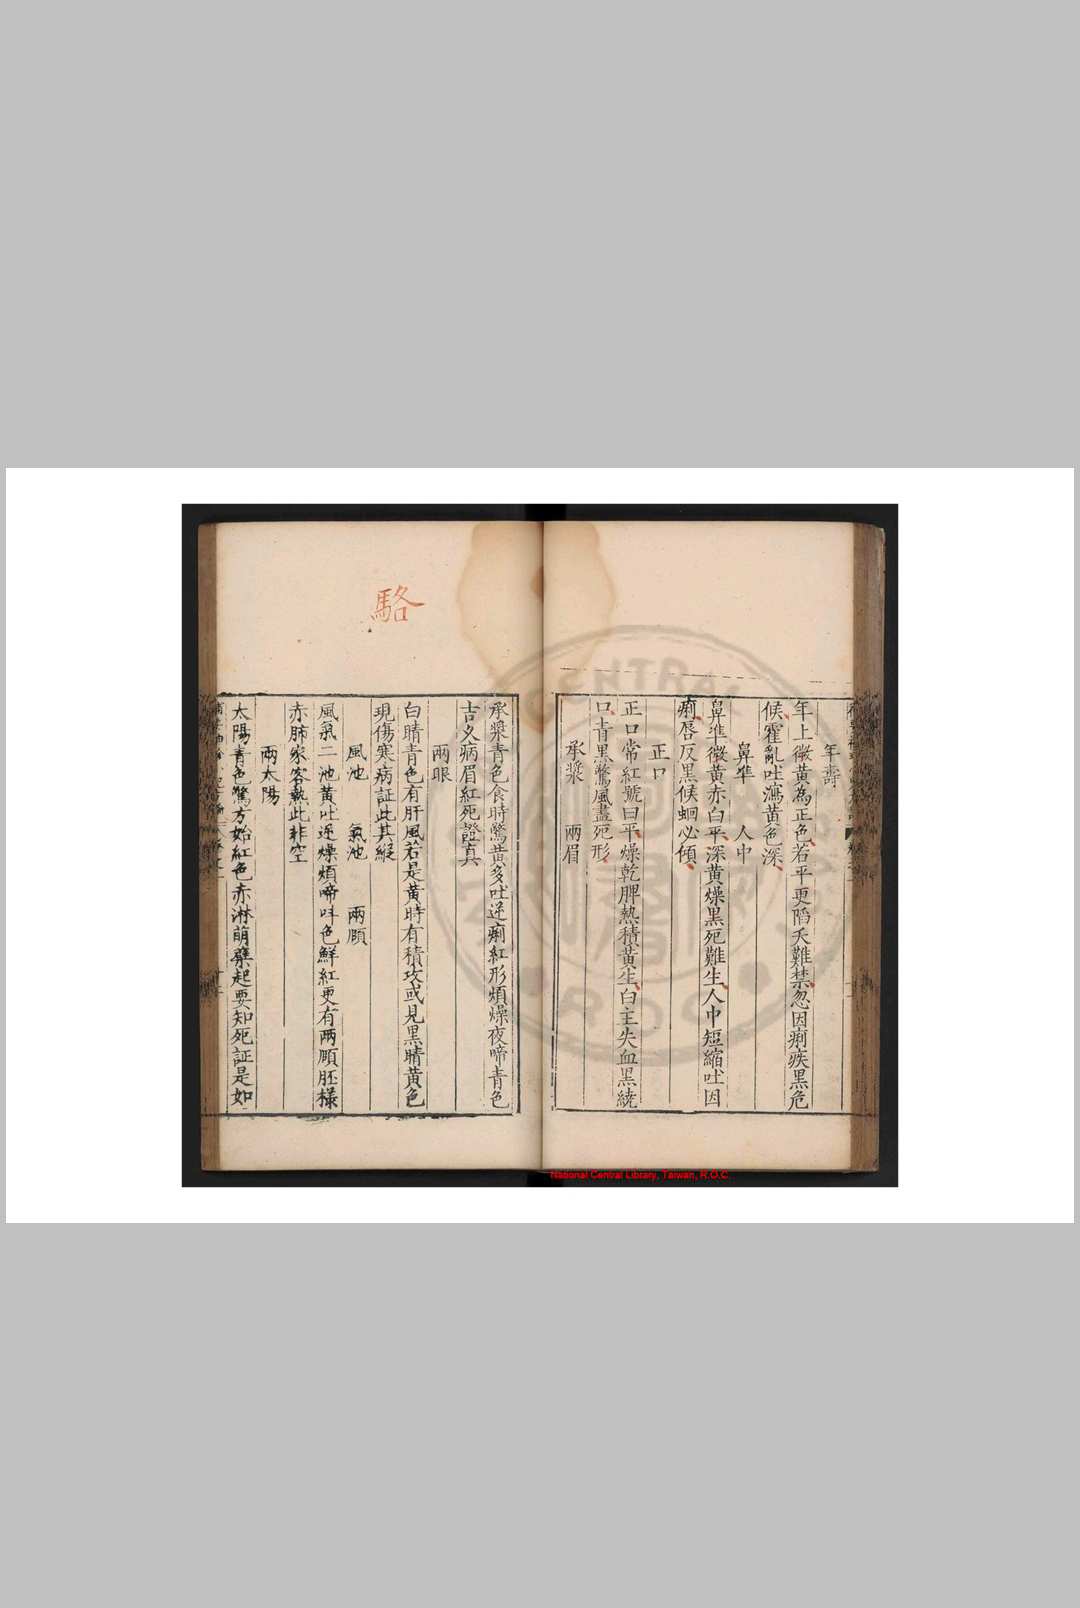 年壽
年上微黃為正色若平更陷夭難禁忽因痢疾黑危
候霍亂吐瀉黃色深
鼻準 人中
鼻準微黃赤白平深黃燥黑死難生人中短縮吐因
痢唇反黑候蛔必傾
正口
正口常紅號曰平燥乾脾熱積黃生白主失血黑繞
口青黑驚風盡死形
承漿 兩眉
承漿青色食時驚黃多吐逆痢紅形煩燥夜啼青色
吉久病眉紅死證真
兩眼
白睛青色有肝風若是黃時有積攻或見黑睛黃色
現傷寒病証此其縱
風池 氣池 兩頤
風氣二池黃吐逆燥煩啼呌色鮮紅更有兩頤胚樣
赤肺家客熱此非空
兩太陽
太陽青色驚方始紅色赤淋萌孽起要知死証是如
駱
CENTRAL
R.O.C
National Central Library, Taiwan, R.O.C.